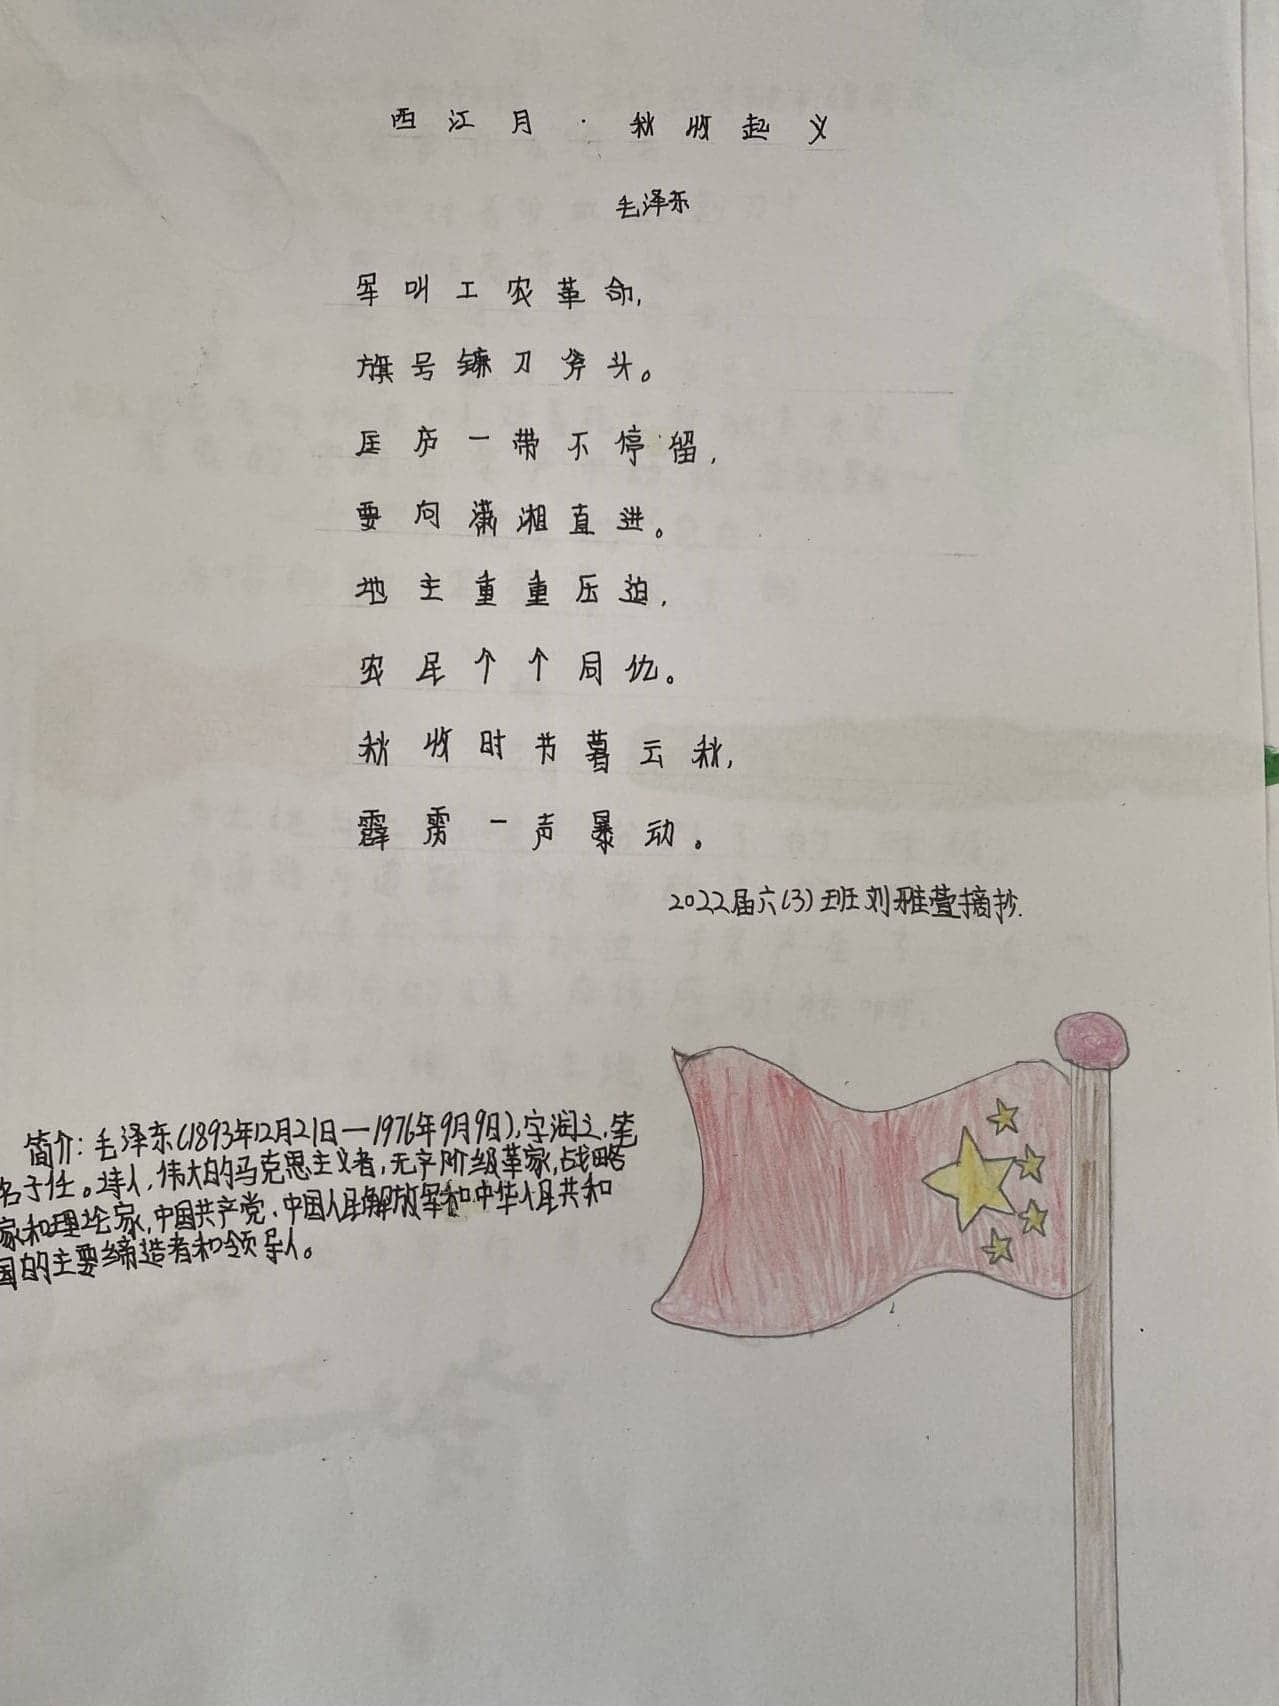 西江月·秋收起义
毛泽东
军叫工农革命,
旗号镰刀斧头。
匡庐一带不停留,
要向潇湘直进。
地主重重压迫,
农民个个同仇。
秋收时节暮云秋,
霹雳一声暴动。
2022届六(3)班刘雅萱摘抄.
简介:毛泽东(1893年12月21日—1976年9月9日),字润之,笔
名子任。诗人,伟大的马克思主义者,无产阶级革家,战略
家和理论家,中国共产党、中国人民解放军和中华人民共和
国的主要缔造者和领导人。